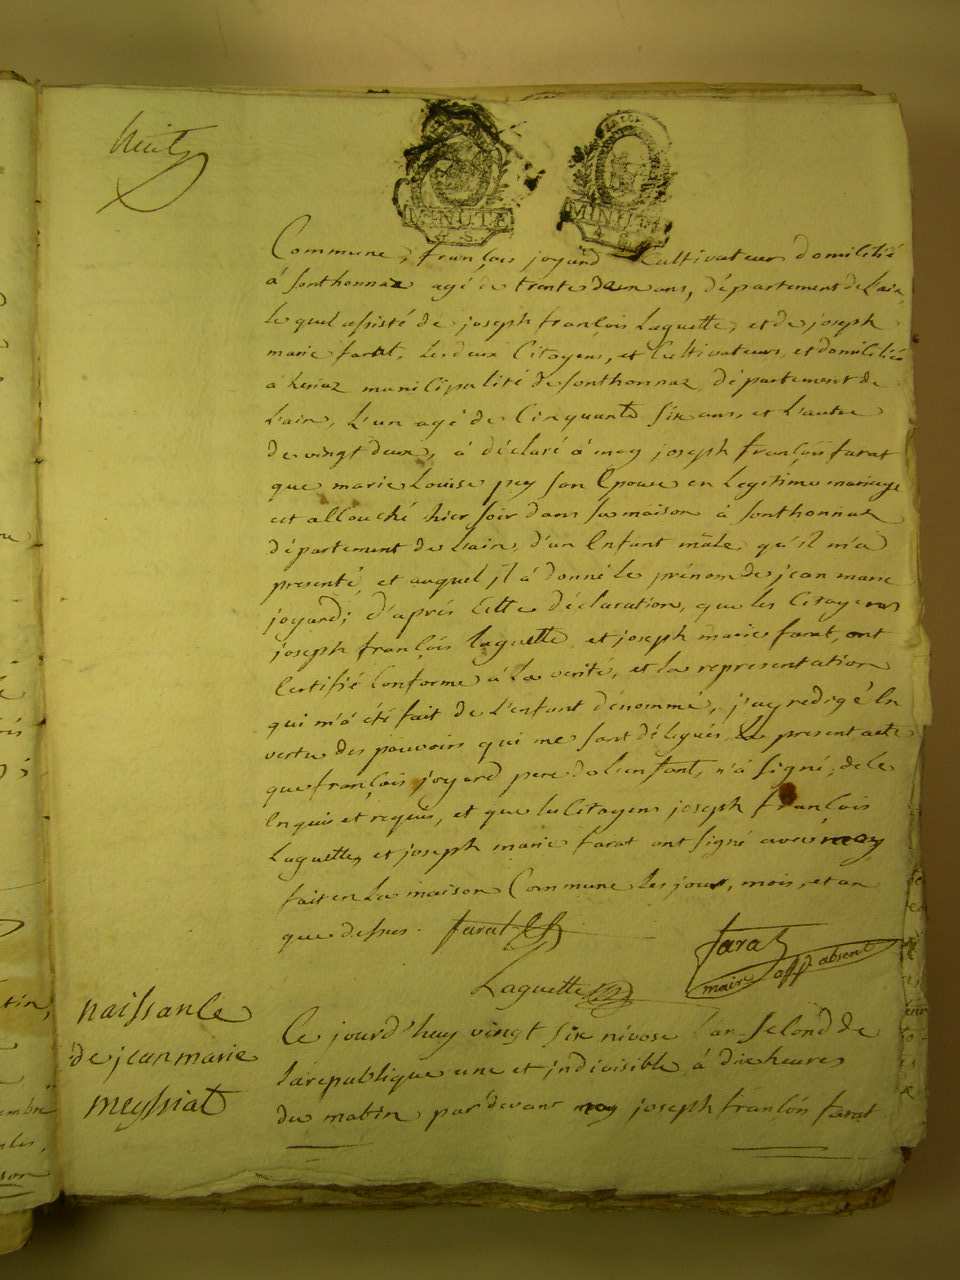 huit
MINUTE
MINUTE
Commune, françois joyard Cultivateur domicilié
à Sonthonnax agé de trente deux ans, département de Lain,
le quel assisté de joseph françois Laguette, et de joseph
marie farat, les deux Citoyens, et Cultivateurs et domiciliés
a municipalité de Sonthonnax département de
Lain, L'un agé de Cinquante Six ans, et L'autre
de vingt deux, à déclaré à moy joseph françois farat
que marie Louise pey son Epouse en Legitime mariage
est allouché hier soir dans sa maison à Sonthonnax
département de Lain, d'un Enfant mâle, qu'il m'a
presenté, et auquel jl à donné le prénom de jean marie
joyard; d'après Cette déclaration, que les Citoyens
joseph françois laguette et joseph marie farat, ont
Certifié Conforme à La verité, et La representation
qui m'à été fait de L'enfant dénommé, j'ay redigé En
vertu des pouvoirs qui me sont délegués, le present acte
que françois joyard pere de l'enfant, n'à signé, de ce
Enquis et requis, et que les Citoyens joseph françois
Laguette, et joseph marie farat ont signé avec moy
fait en La maison Commune les jour, mois, et an
que dessus. farat
farat
maire off. absent
Laguette
naissance
de jean marie
meyssiat
Ce jourd'huy vingt six nivose l'an second de
la republique une et jndivisible, à dix heures
du matin par devant moy joseph françois farat